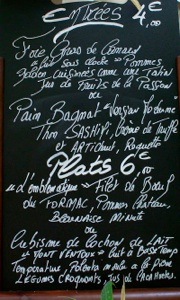 Entrées 4€,00
Foie Gras de Canard
" fait sous cloche " Pommes
Golden cuisinées comme une Tatin
Jus de fruits de la Passion
ou
Pain Bagnat "Version Yvonne"
Thon SASHIMI, Crème de truffe
et ARTichaut, Roquette
Plats 6€,00
"L'emblématique" Filet de Bœuf
du FORMAC, Pommes Château,
Béarnaise Minute
ou
Cubisme de Cochon de LAIT
" MONT VENTOUX " Cuit à Basse Temp
Température, Polenta
Légumes Croquants, Jus de